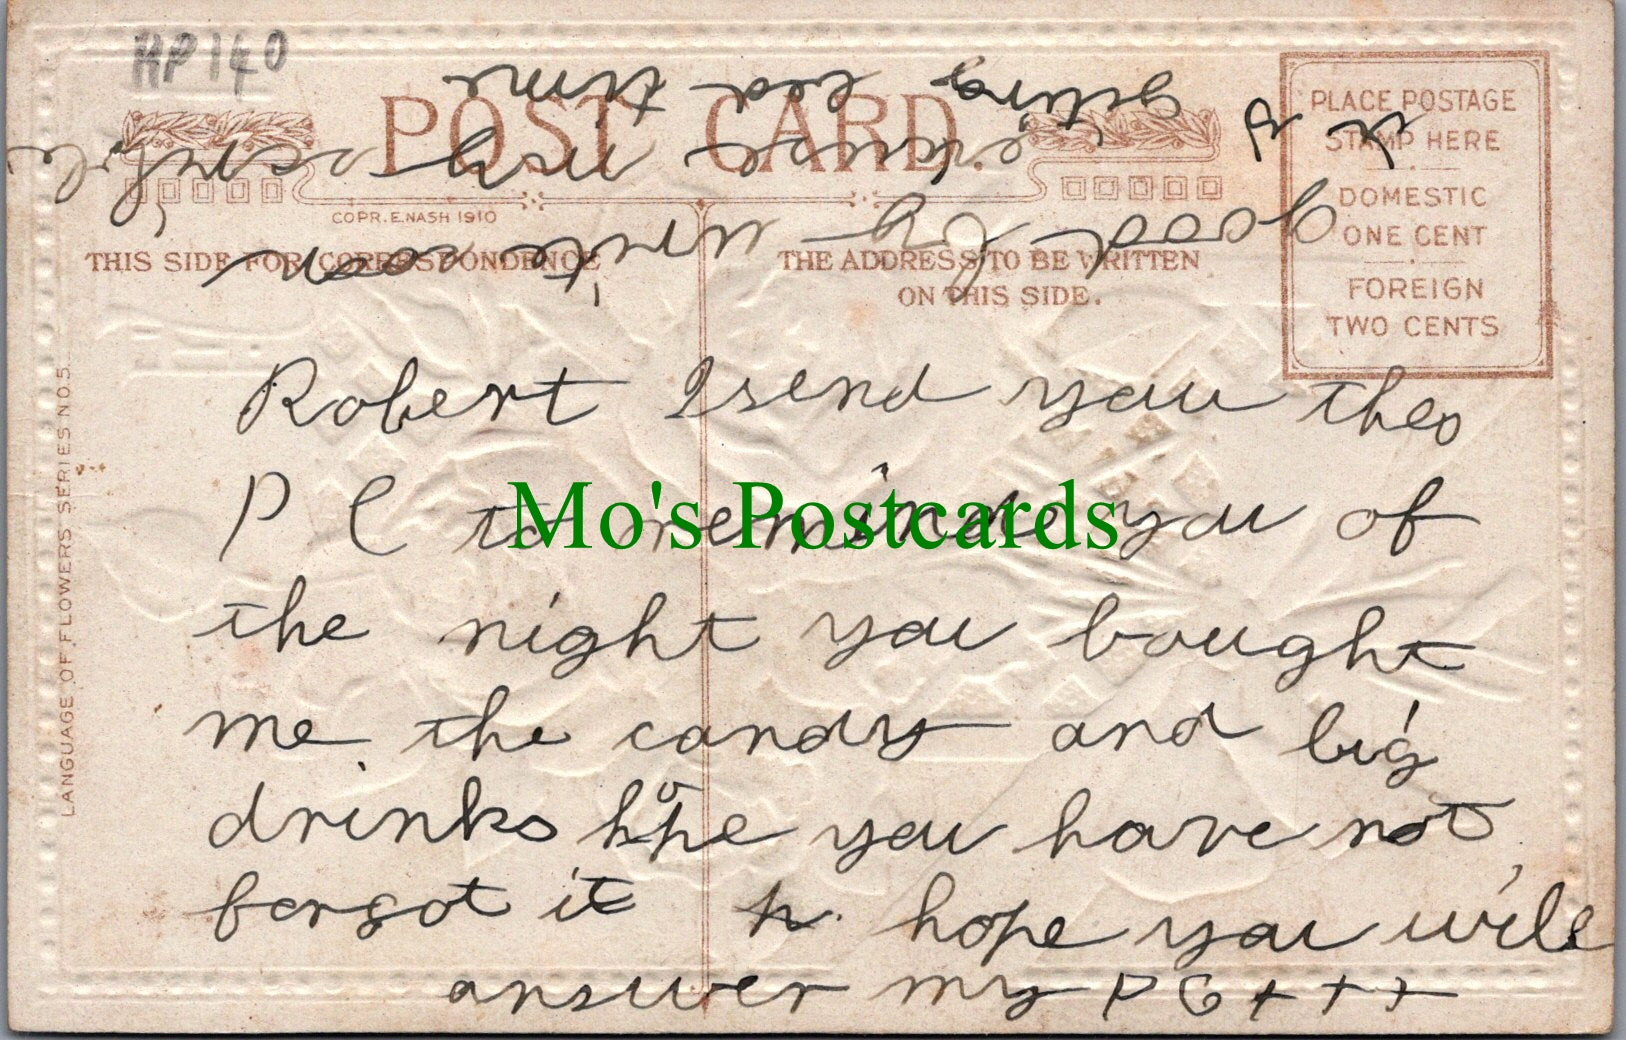 HP 140
POST CARD.
COPR. E. NASH 1910
THIS SIDE FOR CORRESPONDENCE
THE ADDRESS TO BE WRITTEN
ON THIS SIDE.
PLACE POSTAGE
STAMP HERE
DOMESTIC
ONE CENT
FOREIGN
TWO CENTS
LANGUAGE OF FLOWERS SERIES NO. 5.
Robert I send you thes
P C to reminde you of
the night you bought
me the candy and big
drinks hope you have not
forgot it hope you wile
answer my P C + + +
good by write soon
excuse my
geting bed time
Mo's Postcards